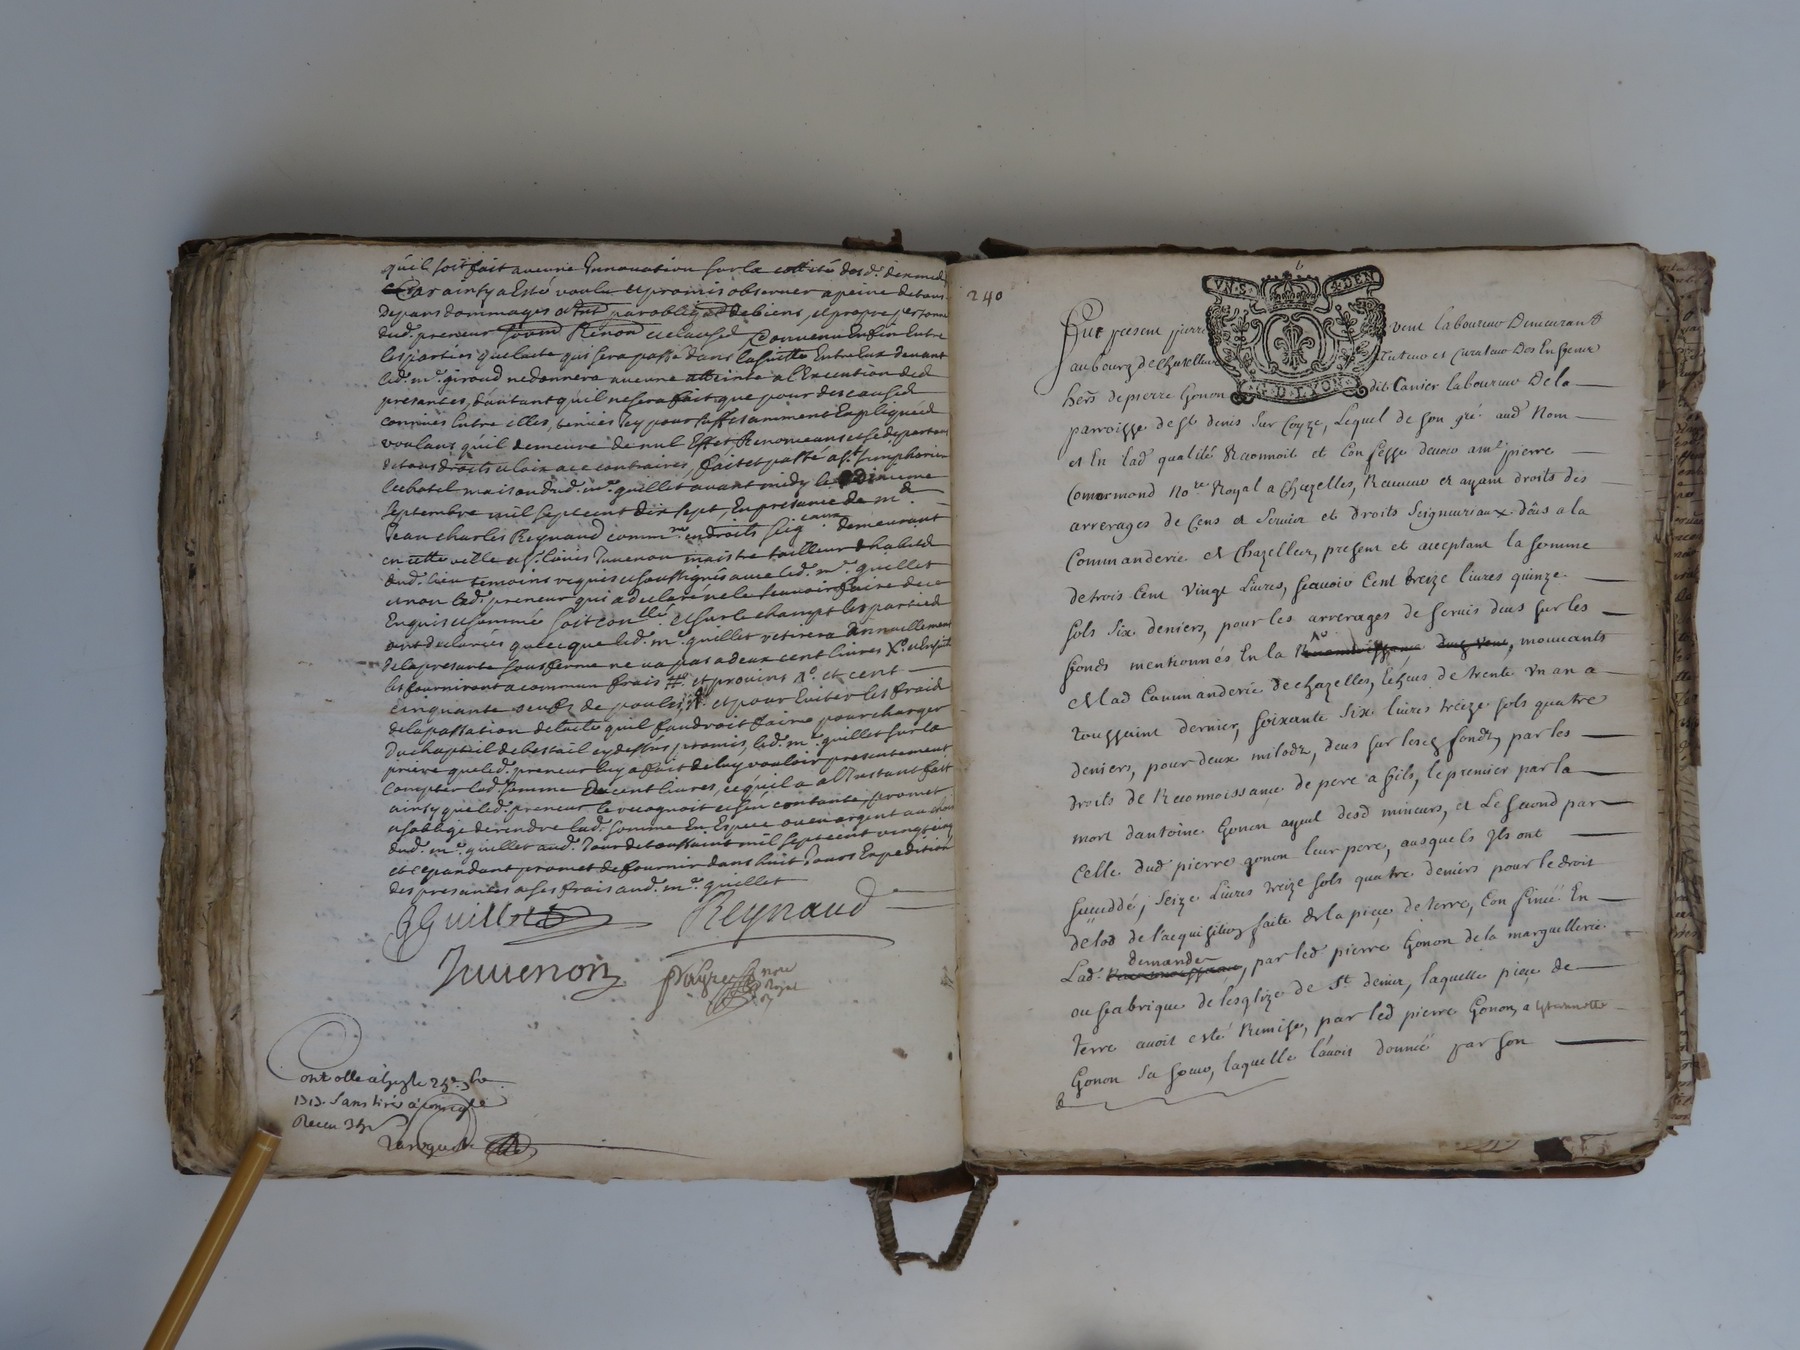 qu'il soit fait aucune Innovation sur la cottité des d. denrées
Car ainsy a Esté voulu et promis observer a peine de tous
depans dommages par oblig[on] de biens, et propre personne
dud. preneur soum Renon et clauses Convenu Enfin Entre
les parties que lacte qui sera passé dans la suitte Entre Eux devant
led. me. giraud ne donnera aucune atteinte a l'Execution des
presantes, d'autant qu'il ne sera fait que pour des causes
connües Entre elles, tenües Icy pour suffisamment Expliquées
voulans qu'il demeure de nul Effet Renonceans et se departans
de tous droits et loix a ce contraires, fait et passé a st. simphorien
le chatel maison dud. me. quillet avant midy le
septembre mil sept cent dix sept, En presance de me.
Jean charles Reynaud commre. en droits seigeaux demeurant
en cette ville et sr. Louis Juuenon maistre tailleur d'habits
dud. lieu temoins requis et soussignés avec led. me. quillet
et non led. preneur qui a declaré ne le scauoir faire de ce
Enquis et sommé soit conllé. et sur le champt les parties
ont declarées que ce que led. me. quillet retirera Annuellement
de la presante sousferme ne va pas a deux cent livres
les fourniront a commun frais et provins et cent
cinquante oeufz de poules et pour Eviter les fraid
de la passation de lacte qu'il faudroit faire pour charger
Du chapteil de bestail cy dessus promis, led. me. quillet sur la
priere que led. preneur luy a fait de luy vouloir presentement
compter lad. somme De cent livres, ce qu'il a a l'Instant fait
ainsy que led. preneur le recognoit et s'en contante, promet
et soblige de rendre lad. somme En Espece ou en argent au choix
dud. me. quillet aud. Jour de toussaint mil sept cent vingt cinq
et cependant promet de fournir dans huit Jours Expedition
des presantes a ses frais aud. me. quillet
Quillet Reynaud
Juuenon nore Royal
Contolle à le 25e. 7bre.
1717. Sans tiré à consegce
Receu
240
VN·S· 4·DEN
G·D·LYON
Fut present pierre vent laboureur Demeurant
au bourg de Chazelles tuteur et Curateur Des Enffens
hers de pierre Gonon dit Canier laboureur De la
parroisse de St denis Sur Coyze, Lequel de son gré aud Nom
et En lad qualité Reconnoit et Confesse devoir a me pierre
Commarmond Nore Royal a Chazelles, Receveur et ayant droits des
arrerages de Cens et Servis et droits Seigneuriaux dûs a la
Commanderie de Chazelles, present et acceptant la somme
de trois Cent Vingt Livres, scavoir Cent treize livres quinze
sols Six deniers, pour les arrerages de servis deus sur les
fonds mentionnés En la R, mouuants
de lad Commanderie de chazelles, échus de trente vn an a
toussaint dernier, soixante six livres treize sols quatre
deniers, pour deux milodz, deus sur lesd fondz, par les
droits de Reconnoissance de pere a fils, le premier par la
mort dantoine Gonon ayeul desd mineurs, et Le second par
Celle dud pierre gonon leur pere, ausquels Ils ont
succeddé, seize Livres treize sols quatre deniers pour le droit
de lod de l'acquisition faite de la piece de terre, Confinée En
Lad demande, par led pierre Gonon de la marguillerie
ou fabrique de lesglize de St denis, laquelle piece de
terre avoit esté Remise, par led pierre Gonon, a
Gonon Sa soeur, laquelle l'avoit donnée par son